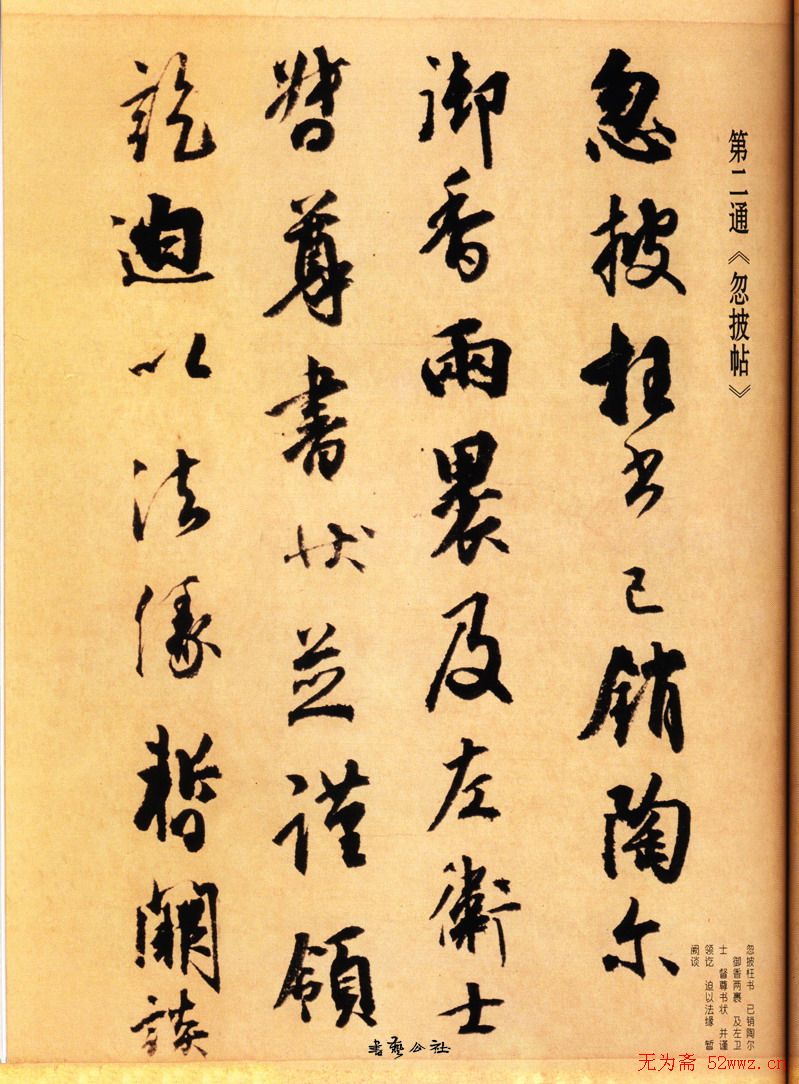 第二通《忽披帖》
忽披枉书已销陶尔
御香兩裹及左衛士
督尊書状並謹領
訖迫以法缘暫闕談
忽披枉书 已销陶尔
御香两裹 及左卫
士 督尊书状 并谨
领讫 迫以法缘 暂
阙谈
書艺公社
无为斋 52wwz.cn